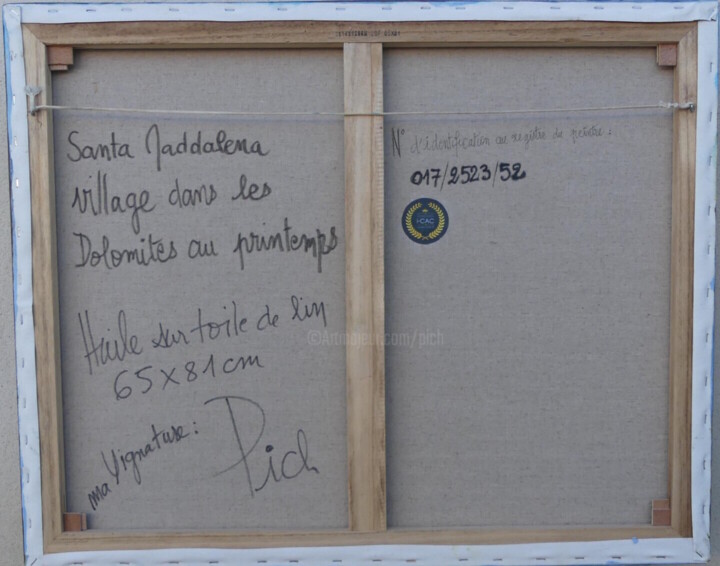 Santa Maddalena
village dans les
Dolomites au printemps
Huile sur toile de lin
65x81cm
ma signature :
Pich
N° d'identification au registre du peintre :
017/2523/52
I-CAC
©Artmajeur.com/pich